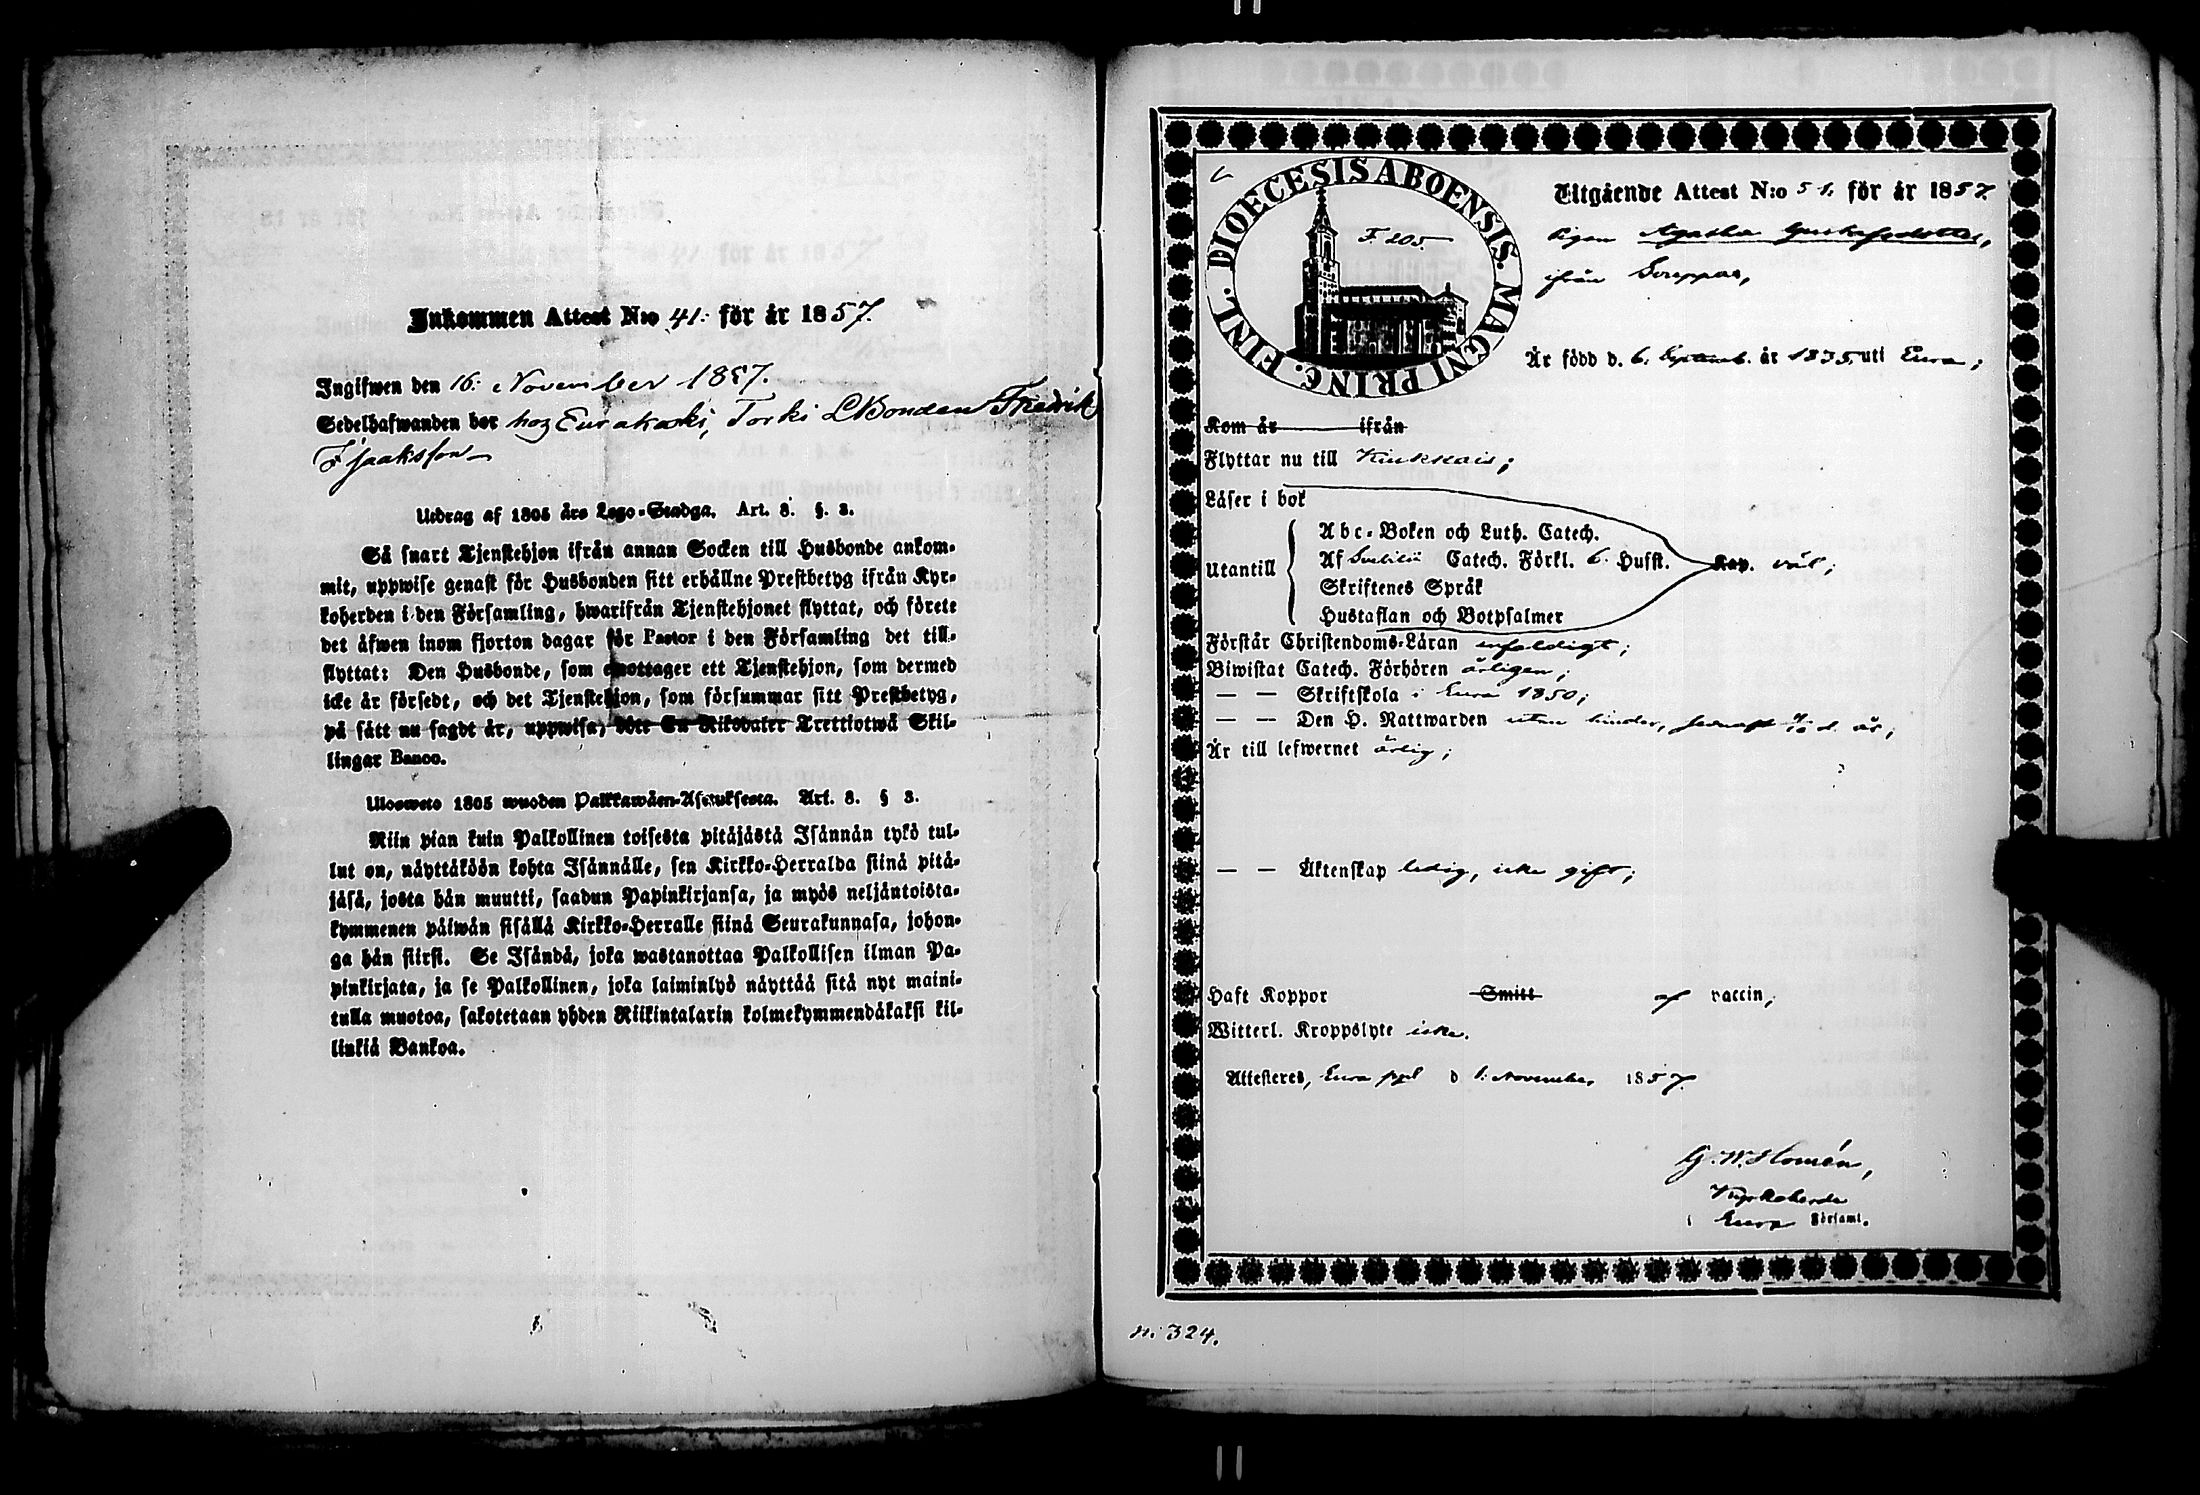 Inkommen Attest N:o 41: för år 1857.
Ingifwen den 16: November 1857.
Sedelhafwanden bor hos Eurakoski, Torki Bonden Fredrik
Isaaksson
Utdrag af 1805 års Lego-Stadga. Art. 8. §. 3.
Så snart Tjenstehjon ifrån annan Socken till Husbonde ankom-
mit, uppwise genast för Husbonden sitt erhållne Prestbetyg ifrån Kyr-
koherden i den Församling, hwarifrån Tjenstehjonet flyttat, och förete
det äfwen inom fjorton dagar för Pastor i den Församling det till-
flyttat: Den Husbonde, som emottager ett Tjenstehjon, som dermed
icke är försedt, och det Tjenstehjon, som försummar sitt Prestbetyg,
på sätt nu sagdt är, uppwisa, böte En Riksdaler Trettiotwå Skil-
lingar Banco.
Ulosweto 1805 wuoden Palkkawäen-Asetuksesta. Art. 8. § 3.
Niin pian kuin Palkollinen toisesta pitäjästä Isännän tykö tul-
lut on, näyttäköön kohta Isännälle, sen Kirkko-Herralda siinä pitä-
jäsä, josta hän muutti, saadun Papinkirjansa, ja myös neljäntoista-
kymmenen päiwän sisällä Kirkko-Herralle siinä Seurakunnasa, johon-
ga hän siirsi. Se Isändä, joka wastanottaa Palkollisen ilman Pa-
pinkirjata, ja se Palkollinen, joka laiminlyö näyttää sitä nyt maini-
tulla muotoa, sakotetaan yhden Riikintalarin kolmekymmendäkaksi kil-
linkiä Bankoa.
DIOECESIS ABOENSIS. MAGNI PRINC. FINL.
F. 205.
Utgående Attest N:o 51: för år 1857.
Pigan Agatha Gustafsdotter,
ifrån Sorppas,
Är född d. 6. Septemb. år 1835 uti Eura;
Kom år ifrån
Flyttar nu till Kiukkais;
Läser i bok
Utantill
Abc-Boken och Luth. Catech.
Af Svebilii Catech. Förkl. 6. Hufst. Kap. väl;
Skriftenes Språk
Hustaflan och Botpsalmer
Förstår Christendoms-Läran enfaldigt;
Biwistat Catech. Förhören årligen;
— — Skriftskola i Eura 1850;
— — Den H. Nattwarden utan hinder, senast d. år;
Är till lefwernet ärlig;
— — Äktenskap ledig, icke gift;
Haft Koppor Smitt af vaccin;
Witterl. Kroppslyte icke.
Attesteres, Eura ppl d 1: November 1857.
G. W. Homén,
Kyrkoherde
i Eura Församl.
n: 324.